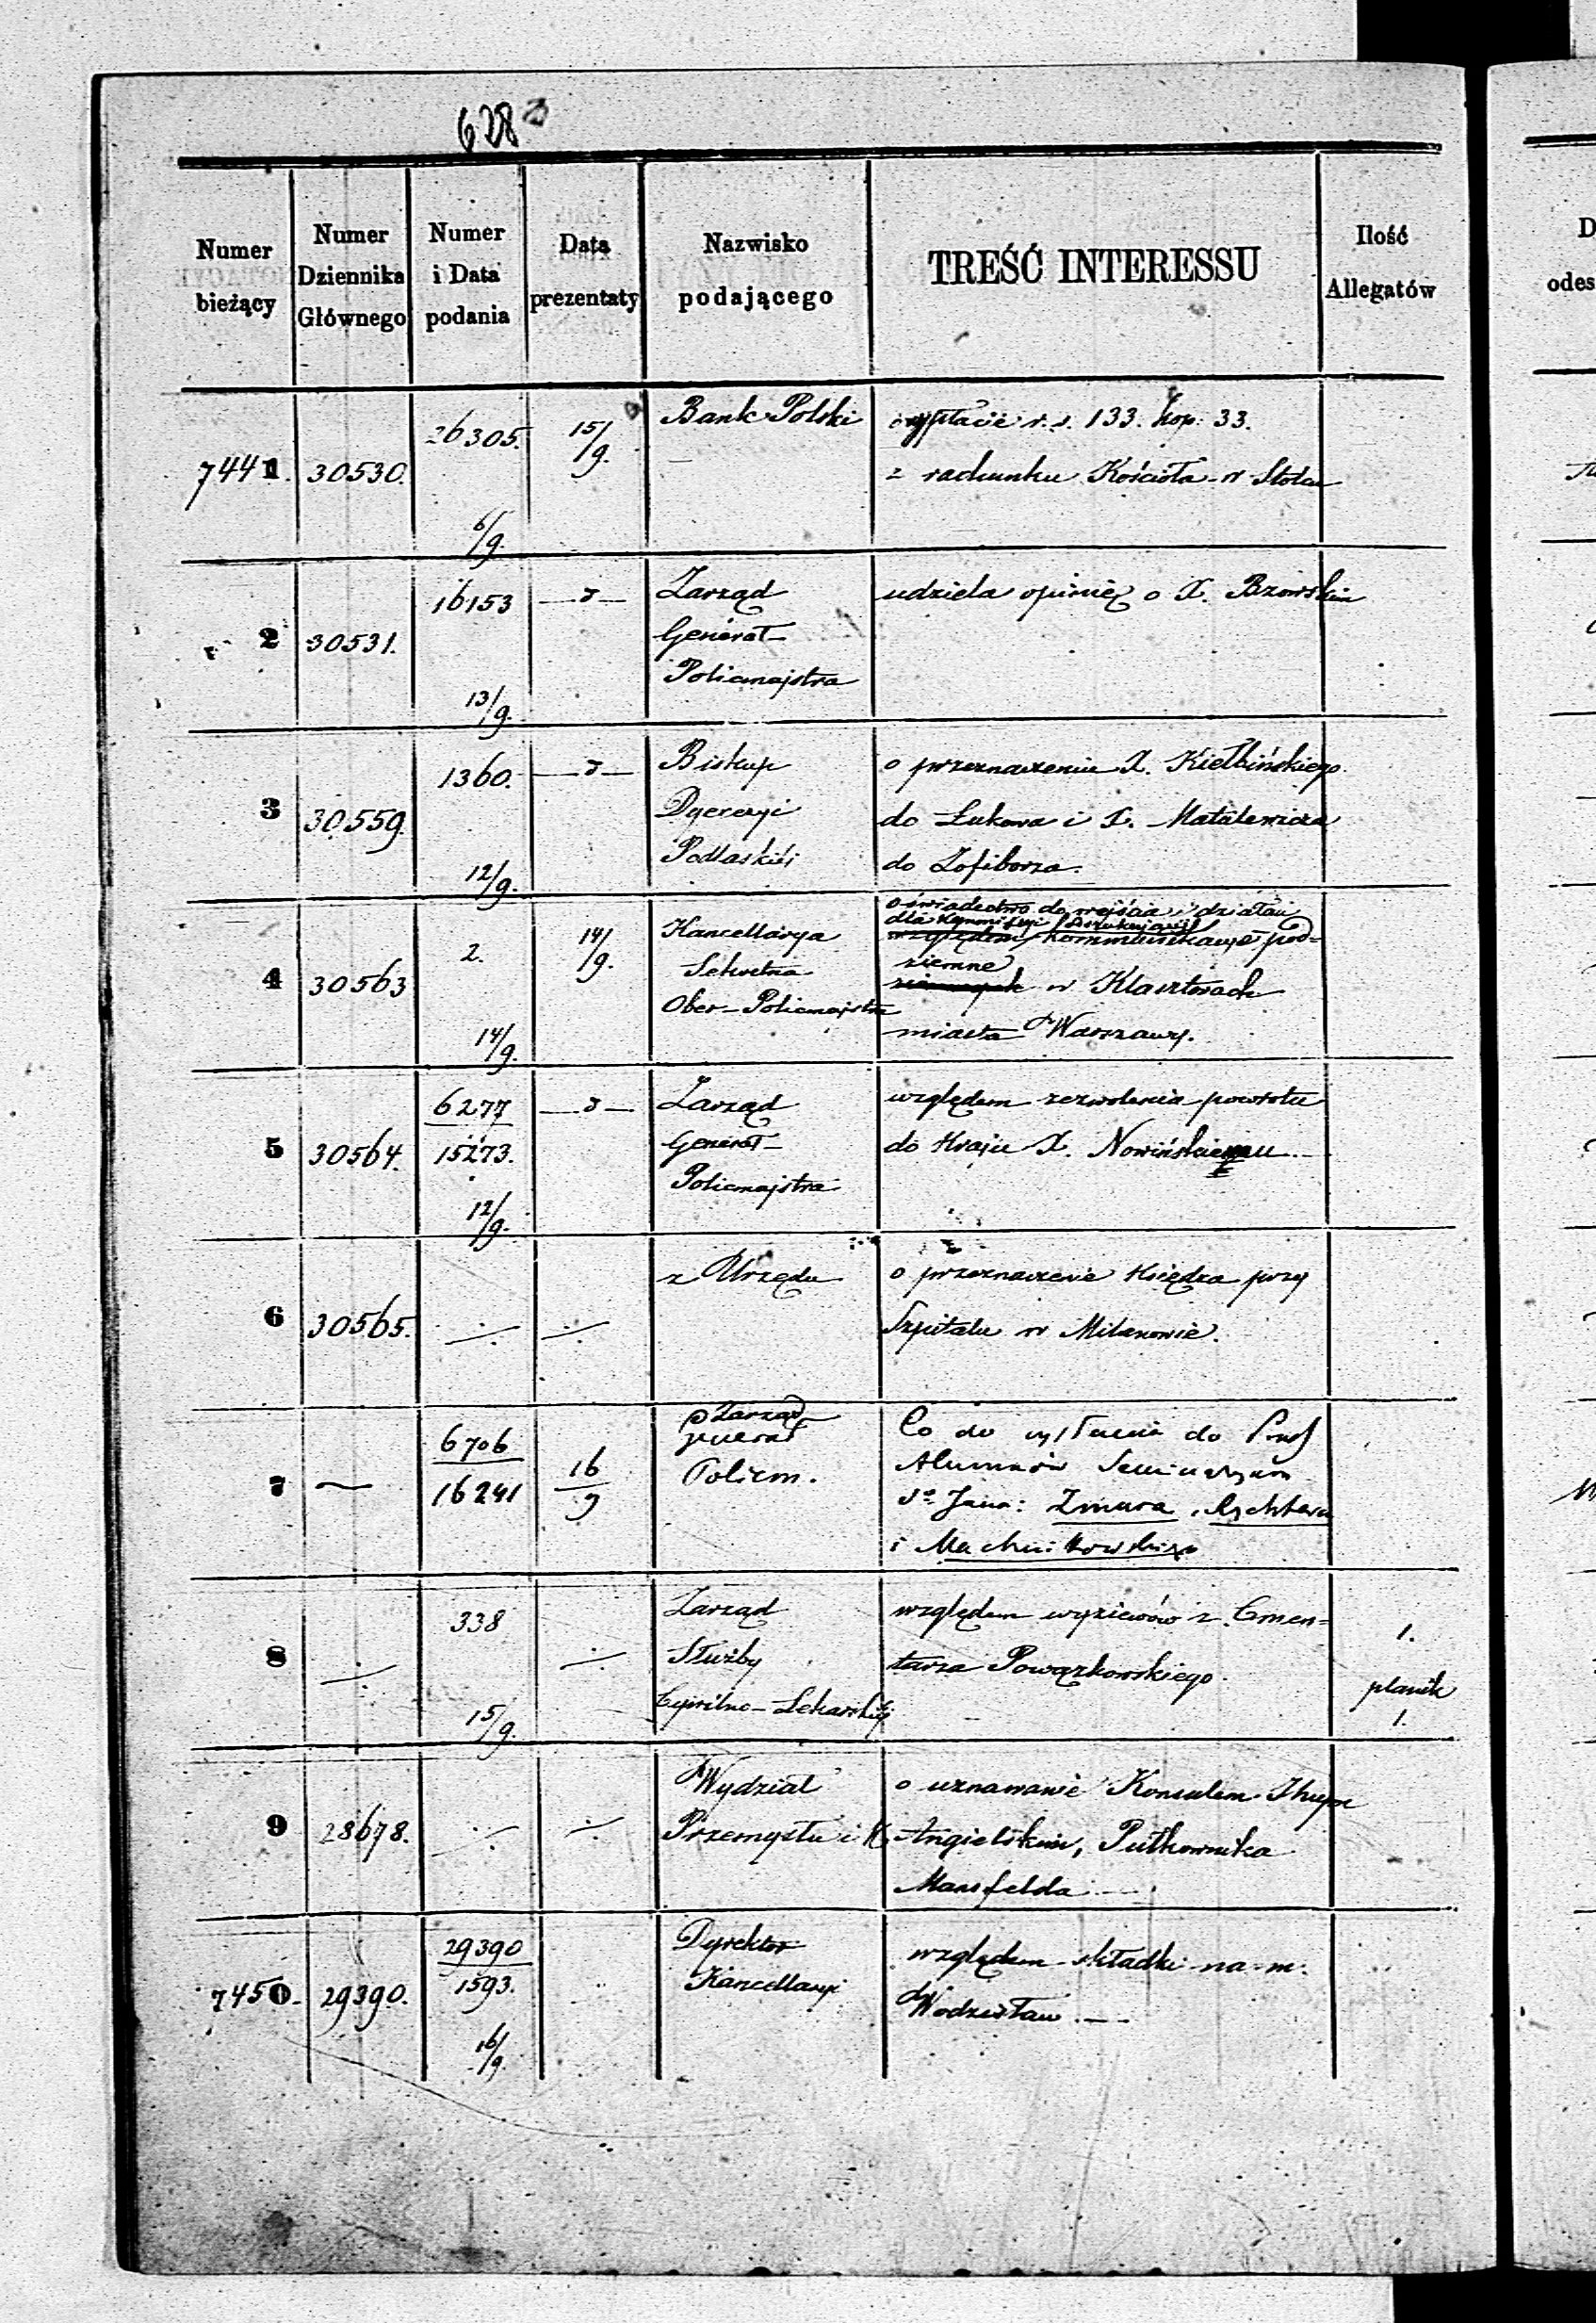 628
Numer bieżący
Numer Dziennika Głównego
Numer i Data podania
Data prezentaty
Nazwisko podającego
TREŚĆ INTERESSU
Ilość Allegatów
7441. 30530. 26305. 6/9. 15/9. Bank Polski
wypłacie r.s. 133. kop: 33.
z rachunku Kościoła w
2 30531. 16153 13/9. Zarząd
Generał-
Policmajstra
udziela opinię o X.
3 30559. 1360. 12/9. Biskup
Dyecezyi
Podlaskiéj
o przeznaczenie X. Kiełbińskiego
do Łukowa i X. Matulewicza
do Zofiborza.
4 30563 2. 14/9. 14/9. Kancellarya
Sekretna
Ober-Policmajstra
o świadectwo do wejścia i działań
dla Kommissyi
względem kommunikacye pod=
ziemne
w Klasztorach
miasta Warszawy.
5 30564. 6277 15273. 12/9. Zarząd
Generał-
Policmajstra
względem zezwolenia powrotu
do Kraju X. Nowińskiemu.
6 30565. z Urzędu
o przeznaczenie Księdza przy
Szpitalu w Milanowie.
7 6706 16241 16/9 Zarząd
Generał
Policm.
Co do wysłania do
Alumnów Seminaryum
Sgo Jana: Zmura,
i Machnikowskiego
8 338 15/9. Zarząd
Służby
Cywilno-Lekarskiéj
względem wyziewów z Cmen=
tarza Powązkowskiego.
1.
planik
1.
9 28678. Wydział
Przemysłu i K
o uznawanie Konsulem
Angielskim, Pułkownika
Mansfelda
7450. 29390. 29390 1593. 16/9. Dyrektor
Kancellaryi
względem składki na m.
Wodzisław.
D
odes